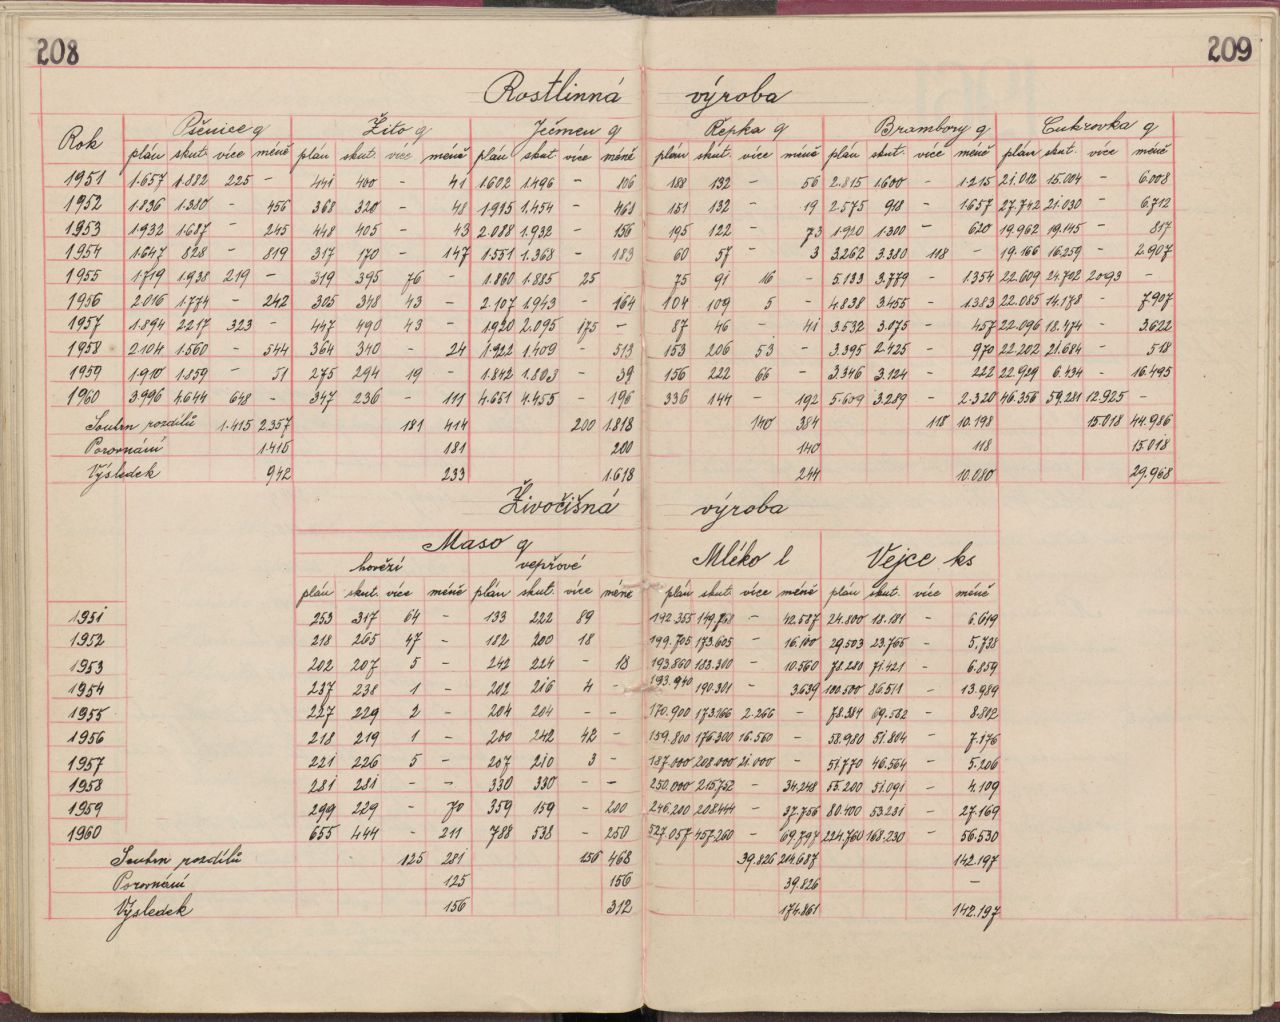 208 209
Rostlinná výroba
Rok Pšenice q Žito q Ječmen q Řepka q Brambory q Cukrovka q
plán skut. více méně plán skut. více méně plán skut. více méně plán skut. více méně plán skut. více méně plán skut. více méně
1951 1.657 1.882 225 - 441 400 - 41 1.602 1.496 - 106 188 132 - 56 2.815 1.600 - 1.215 21.012 15.004 - 6.008
1952 1.836 1.380 - 456 368 320 - 48 1.915 1.454 - 461 151 132 - 19 2.575 918 - 1.657 27.742 21.030 - 6.712
1953 1.932 1.687 - 245 448 405 - 43 2.088 1.932 - 156 195 122 - 73 1.920 1.300 - 620 19.962 19.145 - 817
1954 1.647 828 - 819 317 170 - 147 1.551 1.368 - 183 60 57 - 3 3.262 3.380 118 - 19.166 16.259 - 2.907
1955 1.719 1.938 219 - 319 395 76 - 1.860 1.885 25 75 91 16 - 5.133 3.779 - 1.354 22.609 24.702 2.093 -
1956 2.016 1.774 - 242 305 348 43 - 2.107 1.943 - 164 104 109 5 - 4.838 3.455 - 1.383 22.085 14.178 - 7.907
1957 1.894 2.217 323 - 447 490 43 - 1.920 2.095 175 - 87 46 - 41 3.532 3.075 - 457 22.096 18.474 - 3.622
1958 2.104 1.560 - 544 364 340 - 24 1.922 1.409 - 513 153 206 53 - 3.395 2.425 - 970 22.202 21.684 - 518
1959 1.910 1.859 - 51 275 294 19 - 1.842 1.803 - 39 156 222 66 - 3.346 3.124 - 222 22.929 6.434 - 16.495
1960 3.996 4.644 648 - 347 236 - 111 4.651 4.455 - 196 336 144 - 192 5.609 3.289 - 2.320 46.356 59.281 12.925 -
Souhrn rozdílů 1.415 2.357 181 414 200 1.818 140 384 118 10.198 15.018 44.986
Porovnání 1.415 181 200 140 118 15.018
Výsledek 942 233 1.618 244 10.080 29.968
Živočišná výroba
Maso q Mléko l Vejce ks
hovězí vepřové
plán skut. více méně plán skut. více méně plán skut. více méně plán skut. více méně
1951 253 317 64 - 133 222 89 192.355 149.768 - 42.587 24.800 18.181 - 6.619
1952 218 265 47 - 182 200 18 199.705 173.605 - 16.100 29.503 23.765 - 5.738
1953 202 207 5 - 242 224 - 18 193.860 183.300 - 10.560 78.280 71.421 - 6.859
1954 237 238 1 - 202 216 4 - 193.940 190.301 - 3.639 100.500 86.511 - 13.989
1955 227 229 2 - 204 204 - - 170.900 173.166 2.266 - 78.384 69.582 - 8.802
1956 218 219 1 - 200 242 42 - 159.800 176.300 16.560 - 58.980 51.804 - 7.176
1957 221 226 5 - 207 210 3 - 187.000 208.000 21.000 - 51.770 46.564 - 5.206
1958 281 281 - - 330 330 - - 250.000 215.752 - 34.248 55.200 51.091 - 4.109
1959 299 229 - 70 359 159 - 200 246.200 208.444 - 37.756 80.400 53.231 - 27.169
1960 655 444 - 211 788 538 - 250 527.057 457.260 - 69.797 224.760 168.230 - 56.530
Souhrn rozdílů 125 281 156 468 39.826 214.687 142.197
Porovnání 125 156 39.826 -
Výsledek 156 312 174.861 142.197